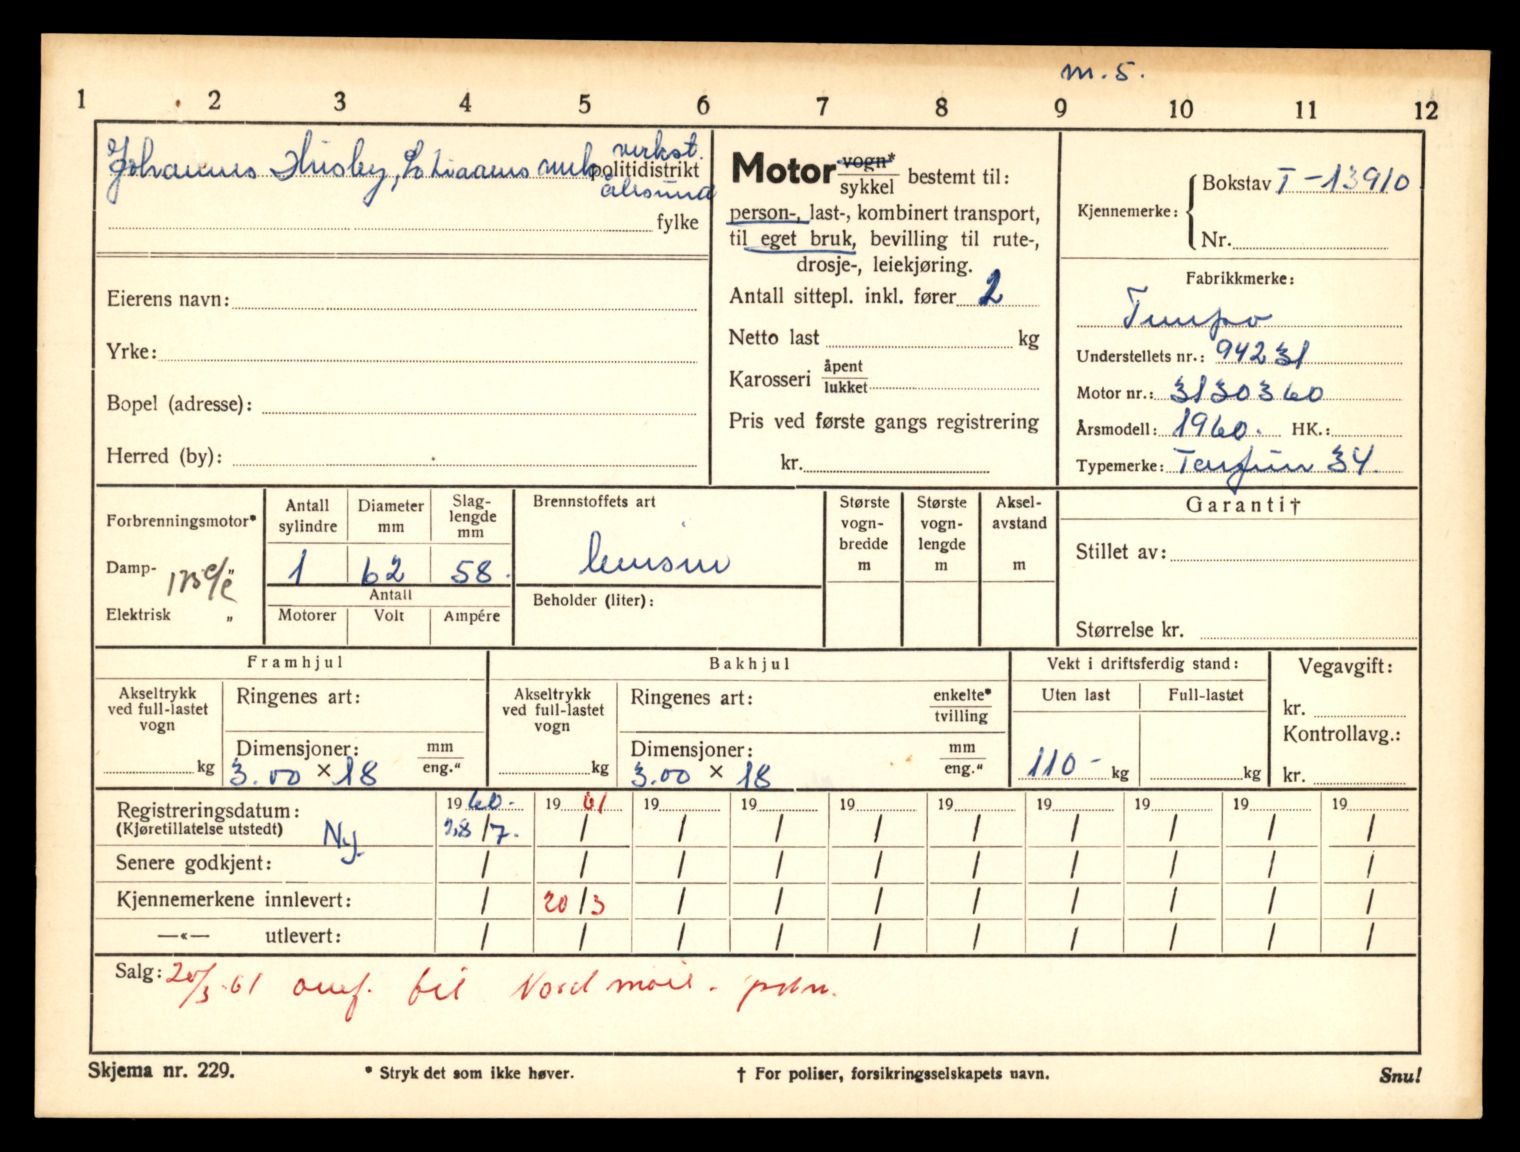 m. 5.
1 2 3 4 5 6 7 8 9 10 11 12
Johannes Husby, mek. verkst.
politidistrikt
Ålesund
fylke
Eierens navn:
Yrke:
Bopel (adresse):
Herred (by):
Motor vogn* sykkel bestemt til:
person-, last-, kombinert transport,
til eget bruk, bevilling til rute-,
drosje-, leiekjøring.
Antall sittepl. inkl. fører 2
Netto last kg
Karosseri åpent lukket
Pris ved første gangs registrering
kr.
Kjennemerke: Bokstav T-13910
Nr.
Fabrikkmerke:
Tempo
Understellets nr.: 94231
Motor nr.: 3130360
Årsmodell: 1960. HK.:
Typemerke: Taifun 34.
Forbrenningsmotor*
Damp- „
175 c/c
Elektrisk „
Antall sylindre
1
Diameter mm
62
Slag-lengde mm
58.
Antall
Motorer Volt Ampére
Brennstoffets art
bensin
Beholder (liter):
Største vogn-bredde m
Største vogn-lengde m
Aksel-avstand m
Garanti†
Stillet av:
Størrelse kr.
Framhjul
Akseltrykk ved full-lastet vogn
kg
Ringenes art:
Dimensjoner: mm eng."
3.00 × 18
Bakhjul
Akseltrykk ved full-lastet vogn
kg
Ringenes art: enkelte* tvilling
Dimensjoner: mm eng."
3.00 × 18
Vekt i driftsferdig stand:
Uten last Full-lastet
110- kg kg
Vegavgift:
kr.
Kontrollavg.:
kr.
Registreringsdatum: 1960. 1961 19 19 19 19 19 19 19 19
(Kjøretillatelse utstedt) Ny 28/7. / / / / / / / / /
Senere godkjent: / / / / / / / / / /
Kjennemerkene innlevert: / 20/3 / / / / / / / /
—«— utlevert: / / / / / / / / / /
Salg: 20/3-61 omf. til Nordmøre. pdm.
Skjema nr. 229. * Stryk det som ikke høver. † For poliser, forsikringsselskapets navn. Snu!